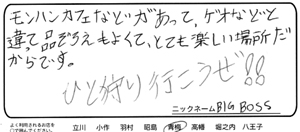 モンハンカフェなどがあって、ゲオなどと
違って品ぞろえもよくて、とても楽しい場所だ
からです。
ひと狩り行こうぜ!!
ニックネーム BIG BOSS
よく利用されるお店を
○で囲んでください。 立川 小作 羽村 昭島 青梅 高幡 堀之内 八王子